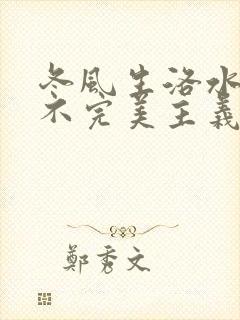 冬風生洛水
不完美主義
鄭秀文